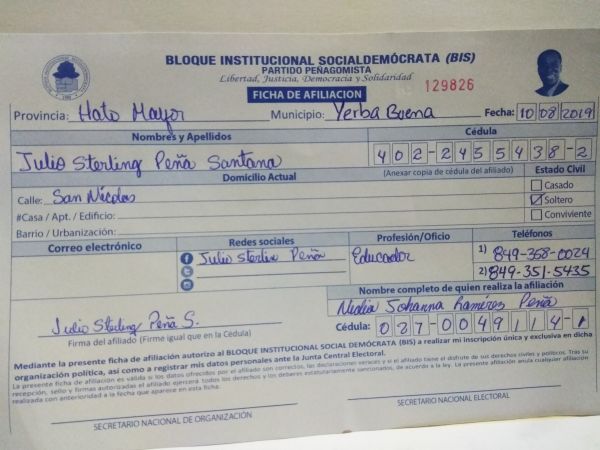 BLOQUE INSTITUCIONAL SOCIALDEMÓCRATA (BIS)
PARTIDO PEÑAGOMISTA
Libertad, Justicia, Democracia y Solidaridad
FICHA DE AFILIACION
129826
Provincia: Hato Mayor Municipio: Yerba Buena Fecha: 10 08 2019
Nombres y Apellidos Cédula
Julio Sterling Peña Santana 402-2455438-2
Domicilio Actual (Anexar copia de cédula del afiliado) Estado Civil
Calle: San Nicolas Casado
#Casa / Apt. / Edificio: Soltero
Barrio / Urbanización: Conviviente
Correo electrónico Redes sociales Profesión/Oficio Teléfonos
Julio Sterlin Peña Educador 1) 849-358-0024
2) 849-351-5435
Nombre completo de quien realiza la afiliación
Johanna Peña
Julio Sterling Peña S. Cédula: 027-0049114-1
Firma del afiliado (Firme igual que en la Cédula)
Mediante la presente ficha de afiliación autorizo al BLOQUE INSTITUCIONAL SOCIAL DEMÓCRATA (BIS) a realizar mi inscripción única y exclusiva en dicha
organización política, así como a registrar mis datos personales ante la Junta Central Electoral.
La presente ficha de afiliación es válida si los datos ofrecidos por el afiliado son correctos, las declaraciones veraces y si el afiliado tiene el disfrute de sus derechos civiles y políticos. Tras su
recepción, sello y firmas autorizadas el afiliado ejercerá todos los derechos y los deberes estatutariamente sancionados, de acuerdo a la ley. La presente afiliación anula cualquier afiliación
realizada con anterioridad a la fecha que aparece en esta ficha.
SECRETARIO NACIONAL DE ORGANIZACIÓN SECRETARIO NACIONAL ELECTORAL